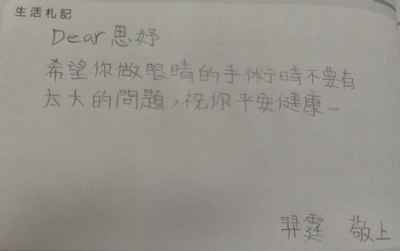 生活札記
Dear 思妤
希望你做眼睛的手術時不要有
太大的問題，祝你平安健康。
羿霆 敬上